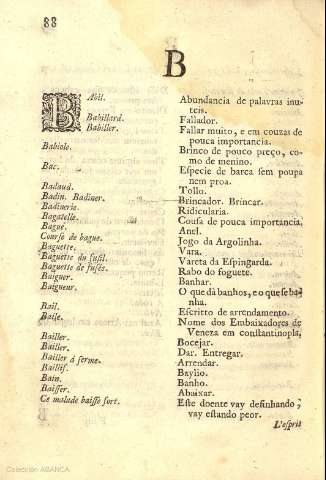 88
B
BAbil. Abundancia de palavras inu-
teis.
Babillard. Fallador.
Babiller. Fallar muito, e em couzas de
pouca importancia.
Babiole. Brinco de pouco preço, co-
mo de menino.
Bac. Especie de barca sem poupa
nem proa.
Badaud. Tollo.
Badin. Badiner. Brincador. Brincar.
Badinerie. Ridicularia.
Bagatelle. Cousa de pouca importancia.
Bague. Anel.
Course de bague. Jogo da Argolinha.
Baguette. Vara.
Baguette du fusil. Vareta da Espingarda.
Baguette de fusés. Rabo do foguete.
Baigner. Banhar.
Baigneur. O que dà banhos, e o que se ba-
nha.
Bail. Escrito de arrendamento.
Baile. Nome dos Embaixadores de
Veneza em constantinopla,
Bailler. Bocejar.
Bailler. Dar. Entregar.
Bailler à ferme. Arrendar.
Baillif. Baylio.
Bain. Banho.
Baisser. Abaixar.
Ce malade baisse fort. Este doente vay desinhando,
vay estando peor.
L'esprit
Colección ABANCA